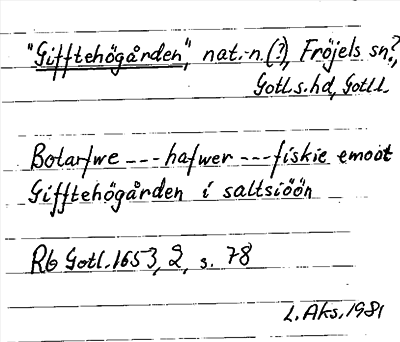 "Gifftehögården", nat.-n.(?), Fröjels sn?,
Gotl.s.hd, Gotl.l.
Botarfwe --- hafwer --- fiskie emoot
Gifftehögården i saltsiöön
Rb Gotl.1653, 2, s. 78
L. Aks. 1981